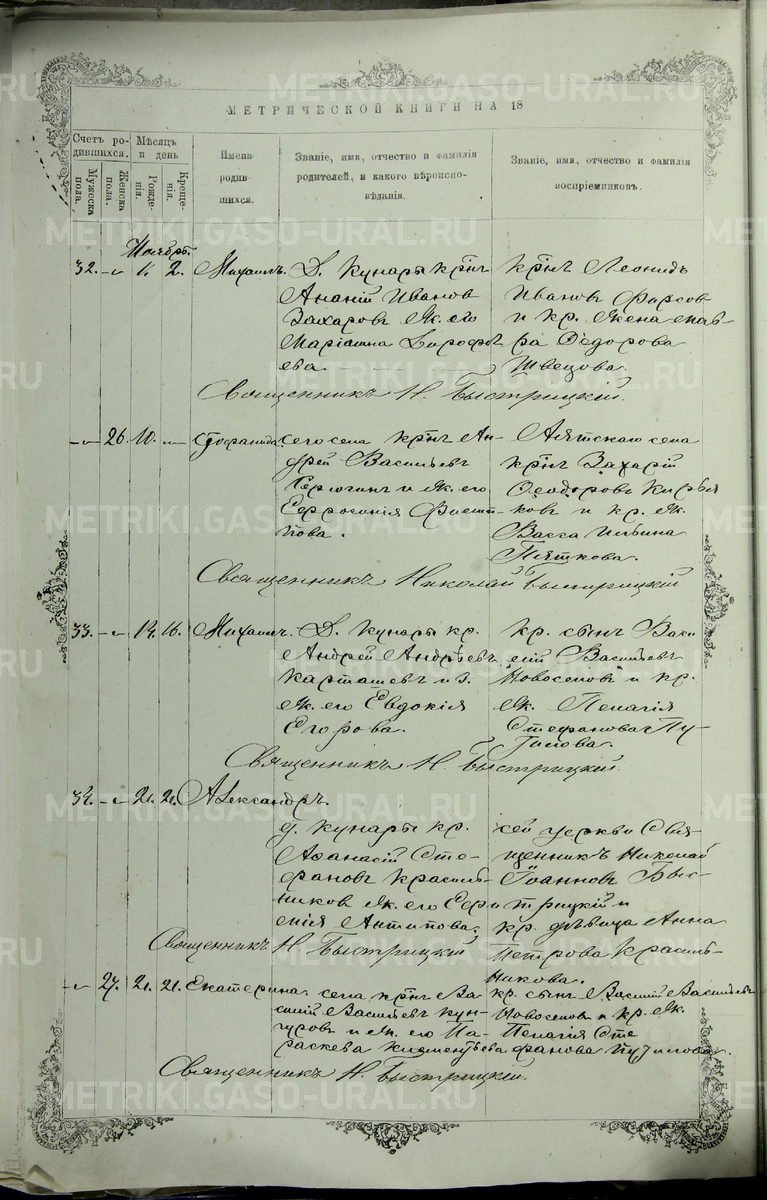 METRIKI.GASO-URAL.RU
МЕТРИЧЕСКОЙ КНИГИ НА 18
Счетъ ро-
дившихся.
Мужеска
пола.
Женска
пола.
Мѣсяцъ
и день
Рожде-
нія.
Креще-
нія.
Имена
родив
шихся.
Званіе, имя, отчество и фамилія
родителей, и какого вѣроиспо-
вѣданія.
Званіе, имя, отчество и фамилія
воспріемниковъ.
Ноябрь.
32. 1. 2. Михаилъ. Д. Кунары крн҃ъ
Ананій Иванов
Захаровъ и ж. его
Маріамна Дорофѣ
ева.
крн҃ъ Леонидъ
Ивановъ Фирсов
и кр. жена Мав-
ра Ѳедорова
Швецова.
Священникъ Н. Быстрицкій.
26. 10. Стефанида сего села крн҃ъ Ан-
дрей Васильевъ
и ж. его
Евфросинія Филип-
пова.
Аятскаго села
крн҃ъ Захарій
Ѳеодоровъ Кирья
ковъ и кр. ж.
Васса Ильина
Пяткова.
Священникъ Николай Быстрицкій
33. 16. Михаилъ. Д. Кунары кр.
Андрей Андреевъ
Карташевъ и з.
ж. его Евдокія
Егорова.
кр. сынъ Васи
лій Васильевъ
Новоселовъ и кр.
ж. Пелагія
Стефанова Пу-
тилова.
Священникъ Н. Быстрицкій.
34. 21. 21. Александръ.
д. Кунары кр.
Аѳанасій Сте-
фановъ Красиль-
никовъ ж. его Евфи
мія Антипова.
сей церкви Свя-
щенникъ Николай
Іоанновъ Быс-
трицкій и
кр. дѣвица Анна
Петрова Красиль-
никова.
Священникъ Н Быстрицкій
27. 21. 21. Екатерина села крн҃ъ Ва
силій Васильевъ Кун-
гуровъ и ж. его Па-
раскева Климентьева
кр. сынъ Василій Васильевъ
Новоселовъ и кр. ж.
Пелагія Сте
фанова Путилова.
Священникъ Н. Быстрицкій.